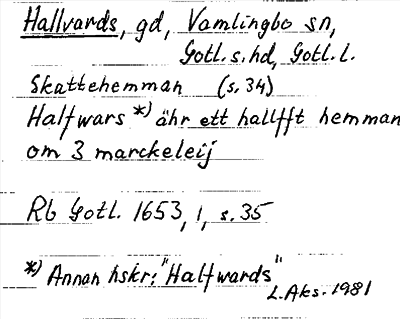 Hallvards, gd, Vamlingbo sn,
Gotl. s. hd, Gotl. l.
Skattehemman (s. 34)
Halfwars *) ähr ett hallfft hemman
om 3 marckeleij
Rb Gotl. 1653, 1, s. 35
*) Annan hskr: "Halfwards"
L. Aks. 1981